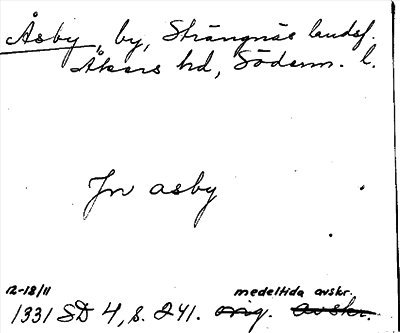 Åsby, by, Strängnäs landsf.
Åkers hd, Söderm. l.
Jn asby
12-18/11 medeltida avskr.
1331 SD 4, s. 241. orig. avskr.